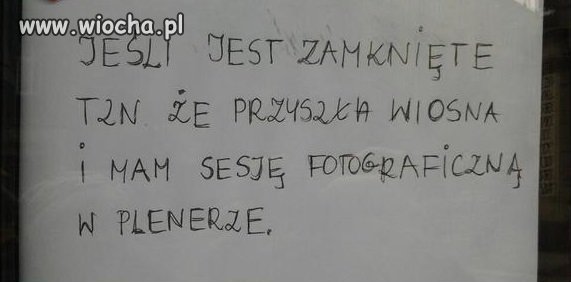 www.wiocha.pl
JEŚLI JEST ZAMKNIĘTE
TZN ŻE PRZYSZŁA WIOSNA
I MAM SESJĘ FOTOGRAFICZNĄ
W PLENERZE.